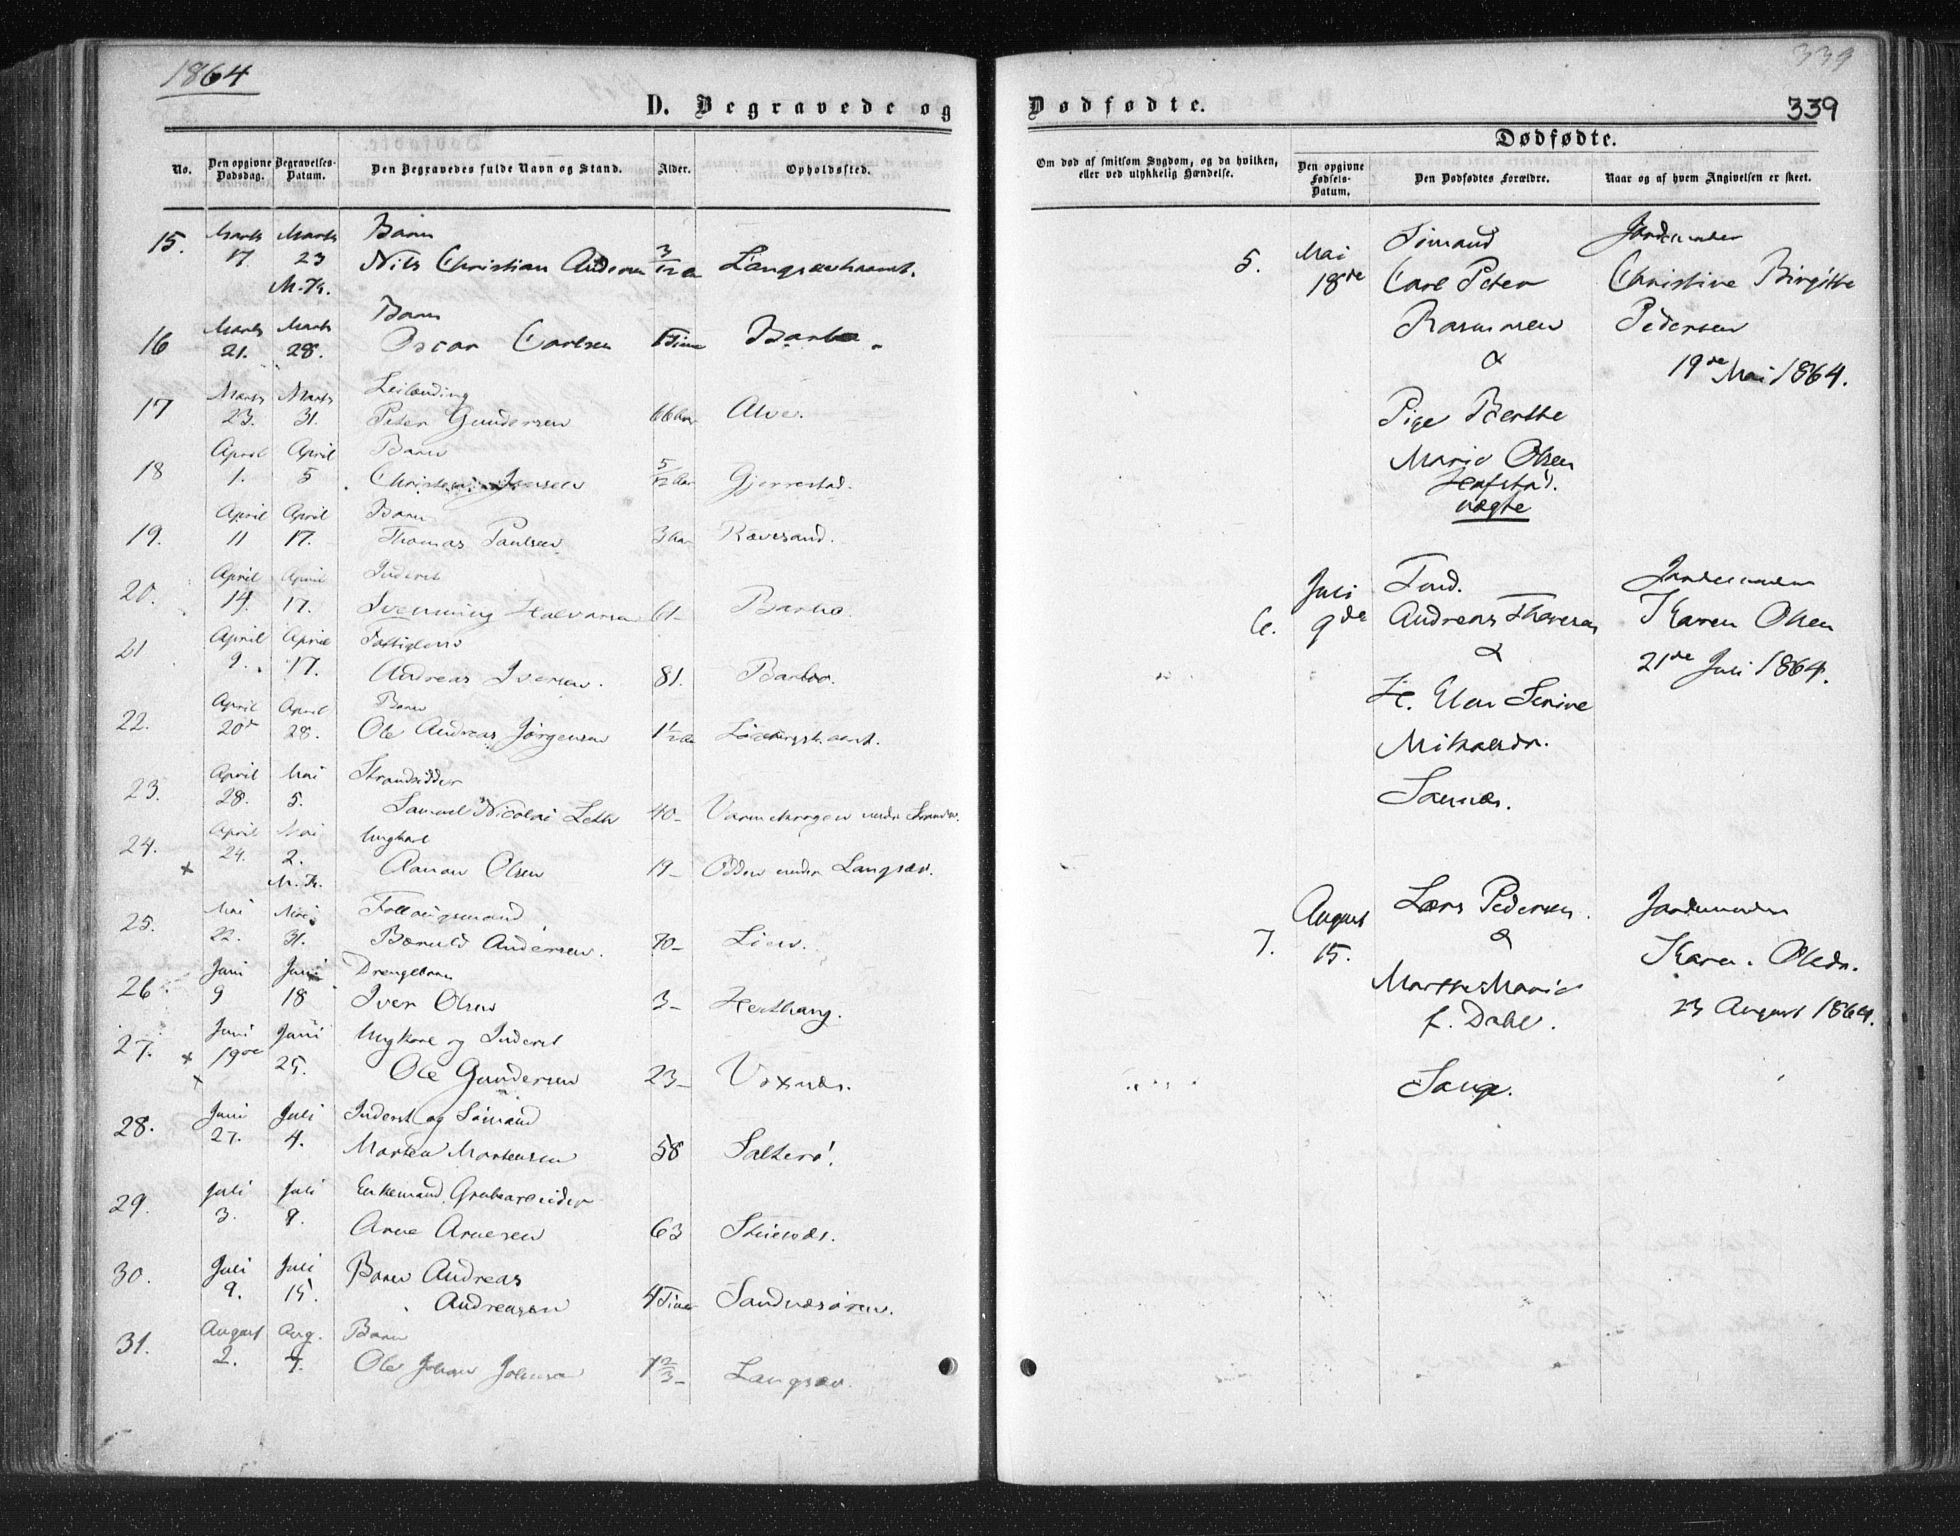 1864
339
D. Begravede og Dødfødte.
339
Dødfødte.
No.
Den opgivne Dødsdag.
Begravelses-Datum.
Den Begravedes fulde Navn og Stand.
Alder.
Opholdssted.
Om død af smitsom Sygdom, og da hvilken, eller ved ulykkelig Hændelse.
Den opgivne Fødsels-Datum.
Den Dødfødtes Forældre.
Naar og af hvem Angivelsen er skeet.
15. Marts 17. Marts 23 M.K. Barn
Nils Christian Andersen 3/12 Aar
16 Marts 21. Marts 28. Barn
Oscar Carlsen 1 Time Barbo.
17 Marts 23. Marts 31. Leilending
Peter Gundersen 66 Aar Alve.
18 April 1. April 5 Barn
Jensen 5/12 Aar Gjerrestad.
19. April 11 April 17. Barn
Thomas Paulsen 3 Aar Rævesand.
20. April 14. April 17. Inderst
Halvorsen 61- Barbo.
21 April 9. April 17. Fattiglem
Andreas Iversen. 81. Barbo.
22. April 20de April 28. Barn
Ole Andreas Jørgensen 1½ Aar
23. April 28. Mai 5. Strandsidder
Samuel Nicolai Leth 40-
24. April 24. Mai 2. M.K. Ungkarl
Aanon Olsen 19- Odden under Langsæv.
25. Mai 22. Mai 31. Føllaugsmand
Andersen. 70- Lien.
26. Juni 9 Juni 18 Drengebarn
Iver Olsen 3-
27. Juni 19de Juni 25. Ungkarl og Inderst
Ole Gundersen 23- Voxnæs.
28. Juni 27. Juli 4. Inderst og Sømand
Morten Mortensen 58 Salterø.
29. Juli 3. Juli 9. Enkemand, Grubearbeider
Arne Arnesen 63
30. Juli 9. Juli 15. Barn Andreas
Andreasen 4 Timer Sandnæsøren.
31. August 2. Aug. 7. Barn
Ole Johan Johnsen 1 2/3- Langsæv.
5. Mai 18de Sømand
Carl Peter
Rasmussen
&
Pige Berthe
Marie Olsen
Hafstad.
uægte
Jordemoder
Christine Birgitte
Pedersen
19de Mai 1864.
6. Juli 9de
Andreas Thorsen
&
Mikaelsdr.
Jordemoder
Karen Olsen
21de Juli 1864.
7. August 15. Lars Pedersen.
&
Marthe Marie
f. Dahl.
Sange.
Jordemoder
Karen Olsdr.
23 August 1864.